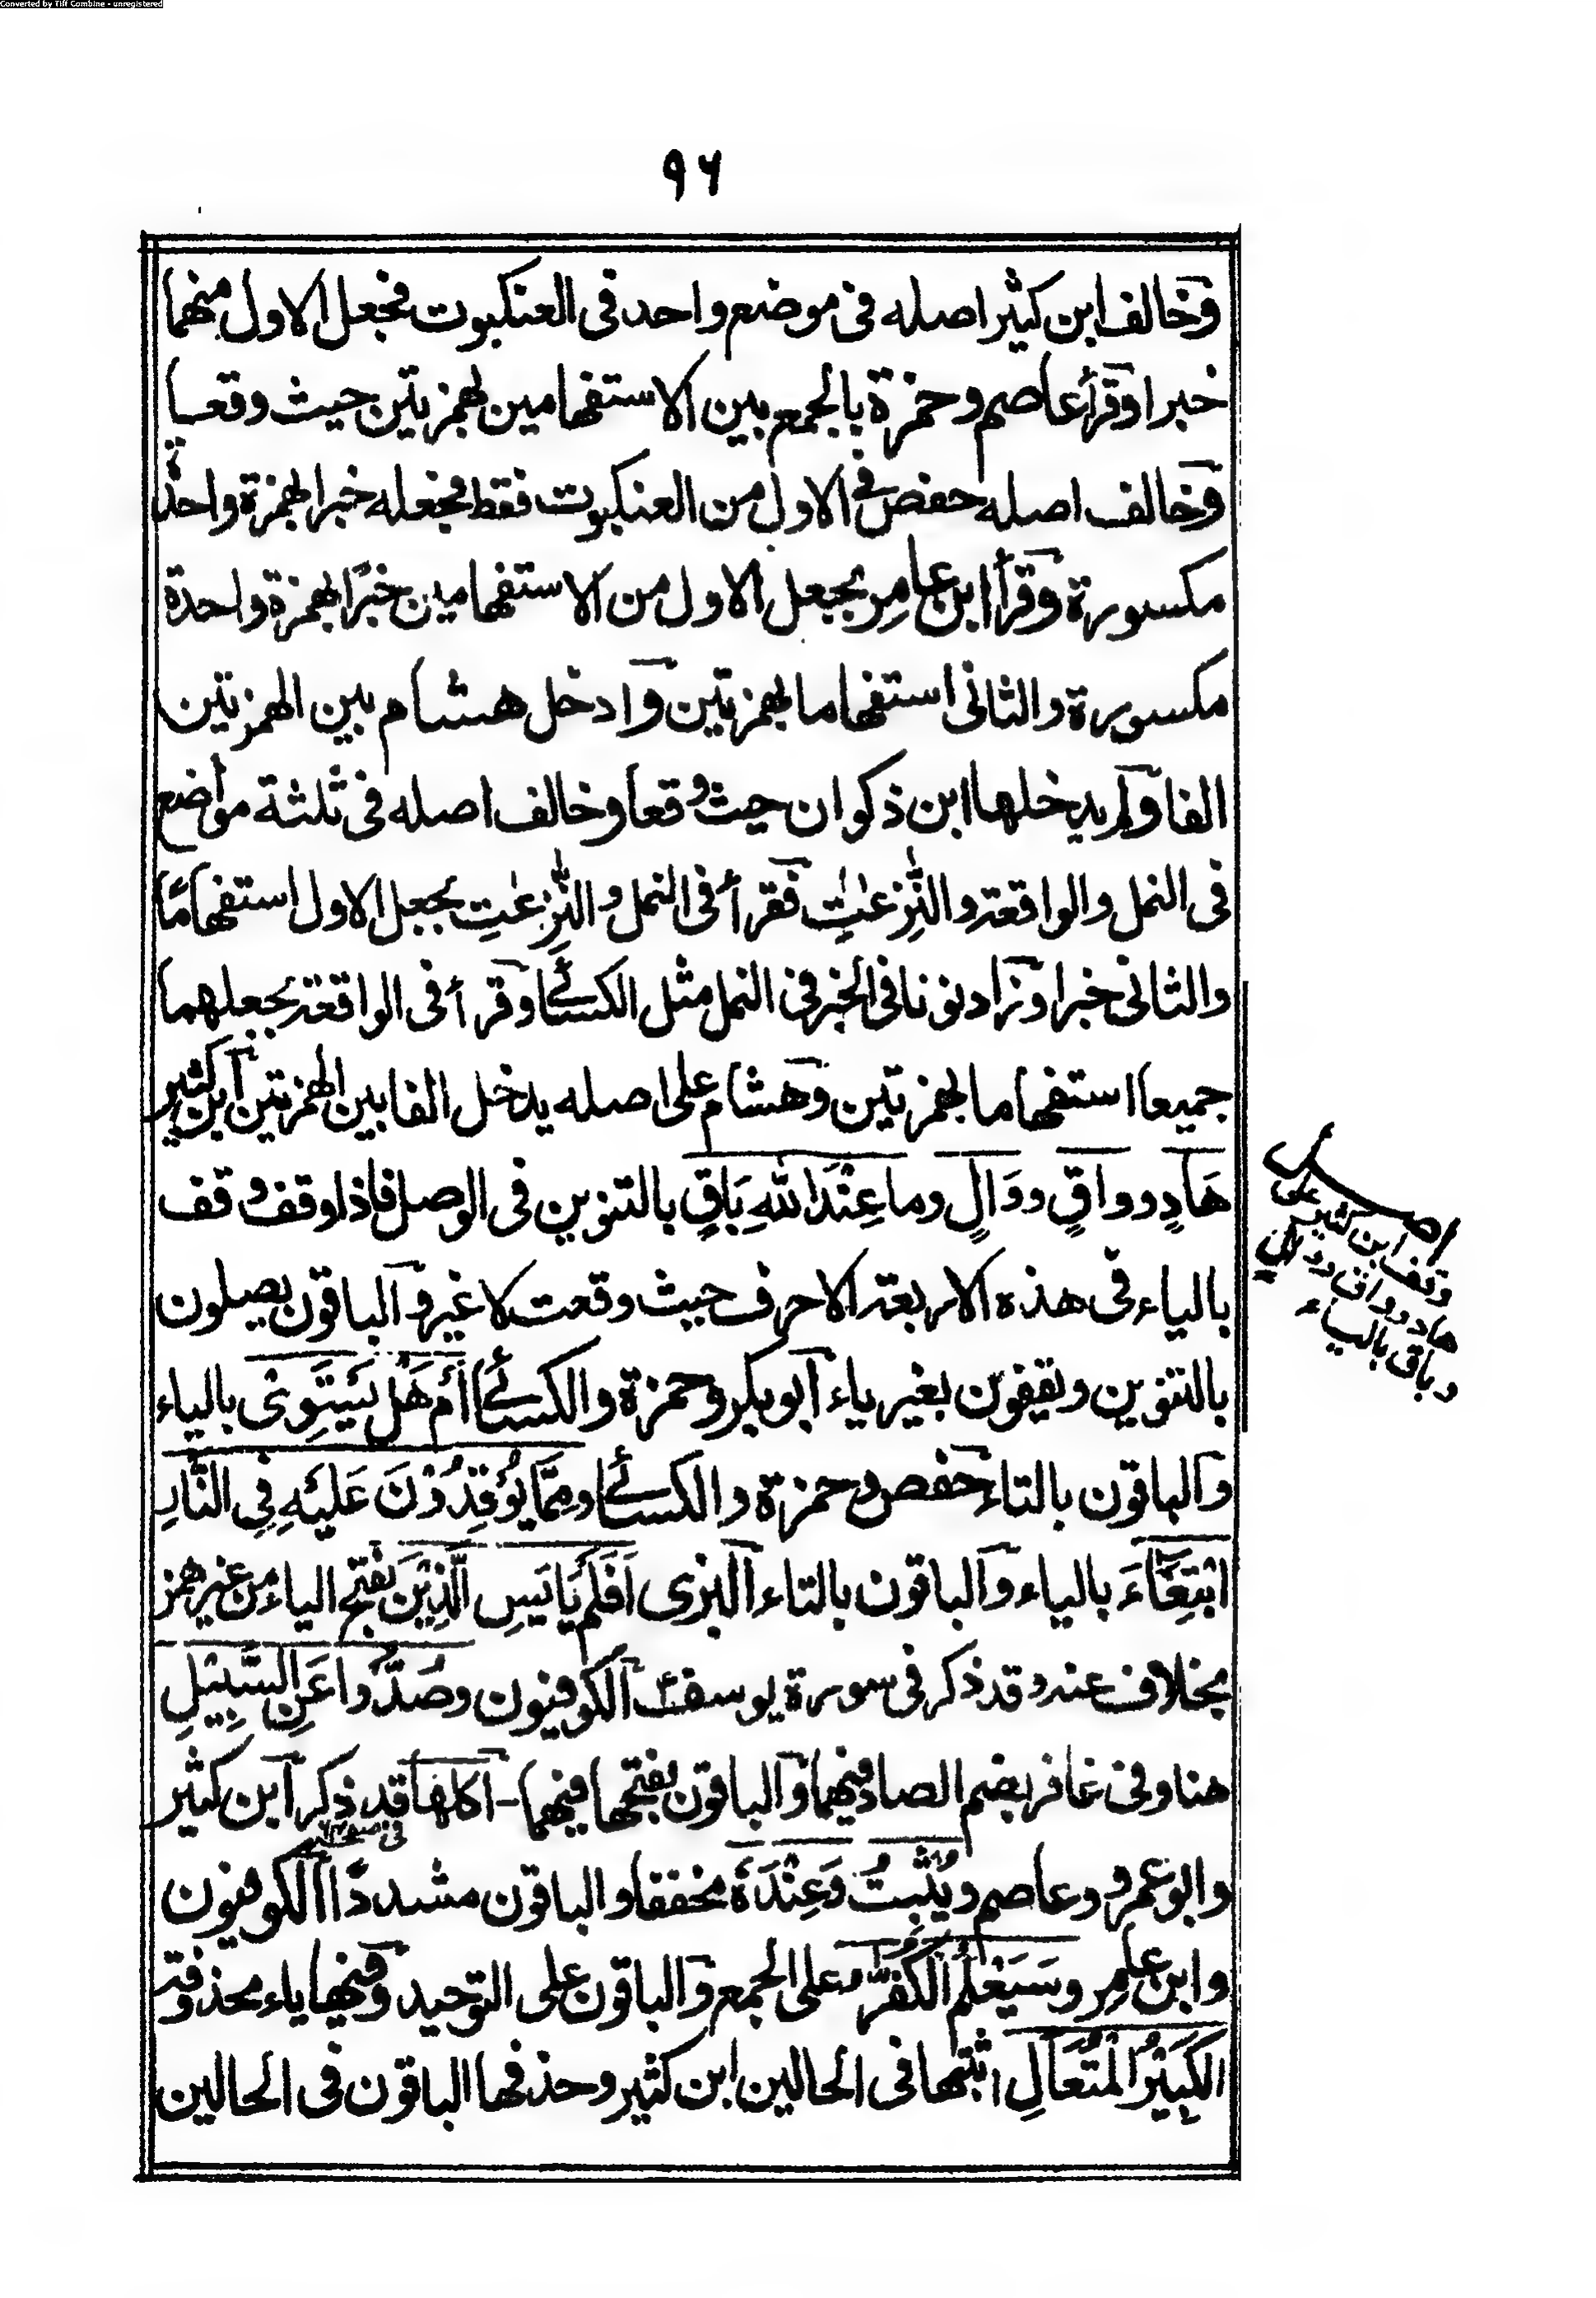 Converted by Tiff Combine - unregistered
٩٦
وخالف ابن كثير اصله فى موضع واحد فى العنكبوت فجعل الاول منهما
خبرا وقرأ عاصم وحمزة بالجمع بين الاستفهامين بهمزتين حيث وقعا
وخالف اصله حفص فى الاول من العنكبوت فقط فجعله خبرا بهمزة واحدة
مكسورة وقرأ ابن عامر بجعل الاول من الاستفهامين خبرًا بهمزة واحدة
مكسورة والثانى استفهاما بهمزتين وادخل هشام بين الهمزتين
الفا ولم يدخلها ابن ذكوان حيث وقعا وخالف اصله فى ثلثة مواضع
فى النمل والواقعة والنّٰزعٰتِ فقرأ فى النمل والنّٰزِعٰتِ بجعل الاول استفهامًا
والثانى خبرا وزاد نونا فى الخبر فى النمل مثل الكسائے وقرأ فى الواقعة بجعلهما
جميعا استفهاما بهمزتين وهشام على اصله يدخل الفا بين الهمزتين ابن كثير
هَادٍ وواقٍ ووَالٍ وما عِنْدَ اللهِ بَاقٍ بالتنوين فى الوصل فاذا وقف وقف
بالياء فى هذه الاربعة الاحرف حيث وقعت لا غير والباقون يصلون
بالتنوين ويقفون بغير ياء ابو بكر وحمزة والكسائے أَمْ هَلْ يَسْتَوِى بالياء
والباقون بالتاء حفص وحمزة والكسائے ومِمَّا يُوْقِدُوْنَ عَلَيْهِ فِي النَّارِ
ابْتِغَاءَ بالياء والباقون بالتاء البزى اَفَلَمْ يَايَسِ الَّذِيْنَ بفتح الياء من غير همز
بخلاف عنه وقد ذكر فى سورة يوسف الكوفيون وصُدُّوا عَنِ السَّبِيْلِ
هنا وفى غافر بضم الصاد فيهما والباقون بفتحها فيهما - اكلها قد ذكر ابن كثير
فى
وابو عمرو وعاصم ويُثْبِتُ وَعِنْدَهٗ مخففا والباقون مشددًا الكوفيون
وابن عامِر وسَيَعْلَمُ الْكُفّٰرُ على الجمع والباقون على التوحيد وفيها ياء محذوفة
الْكَبِيْرُ الْمُتَعَالِ اثبتها فى الحالين ابن كثير وحذفها الباقون فى الحالين
اصل
وقف ابن كثير على
هاد وواق ووال
وباق بالياء